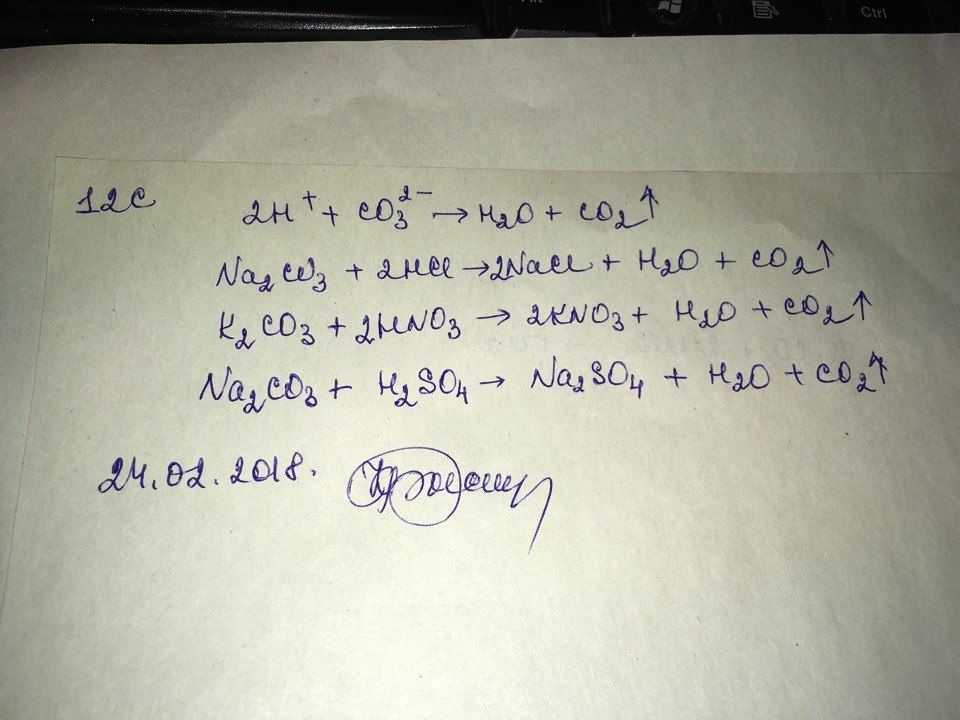 Ctrl
12C
2H⁺ + CO₃²⁻ → H₂O + CO₂↑
Na₂CO₃ + 2HCl → 2NaCl + H₂O + CO₂↑
K₂CO₃ + 2HNO₃ → 2KNO₃ + H₂O + CO₂↑
Na₂CO₃ + H₂SO₄ → Na₂SO₄ + H₂O + CO₂↑
24.02.2018.